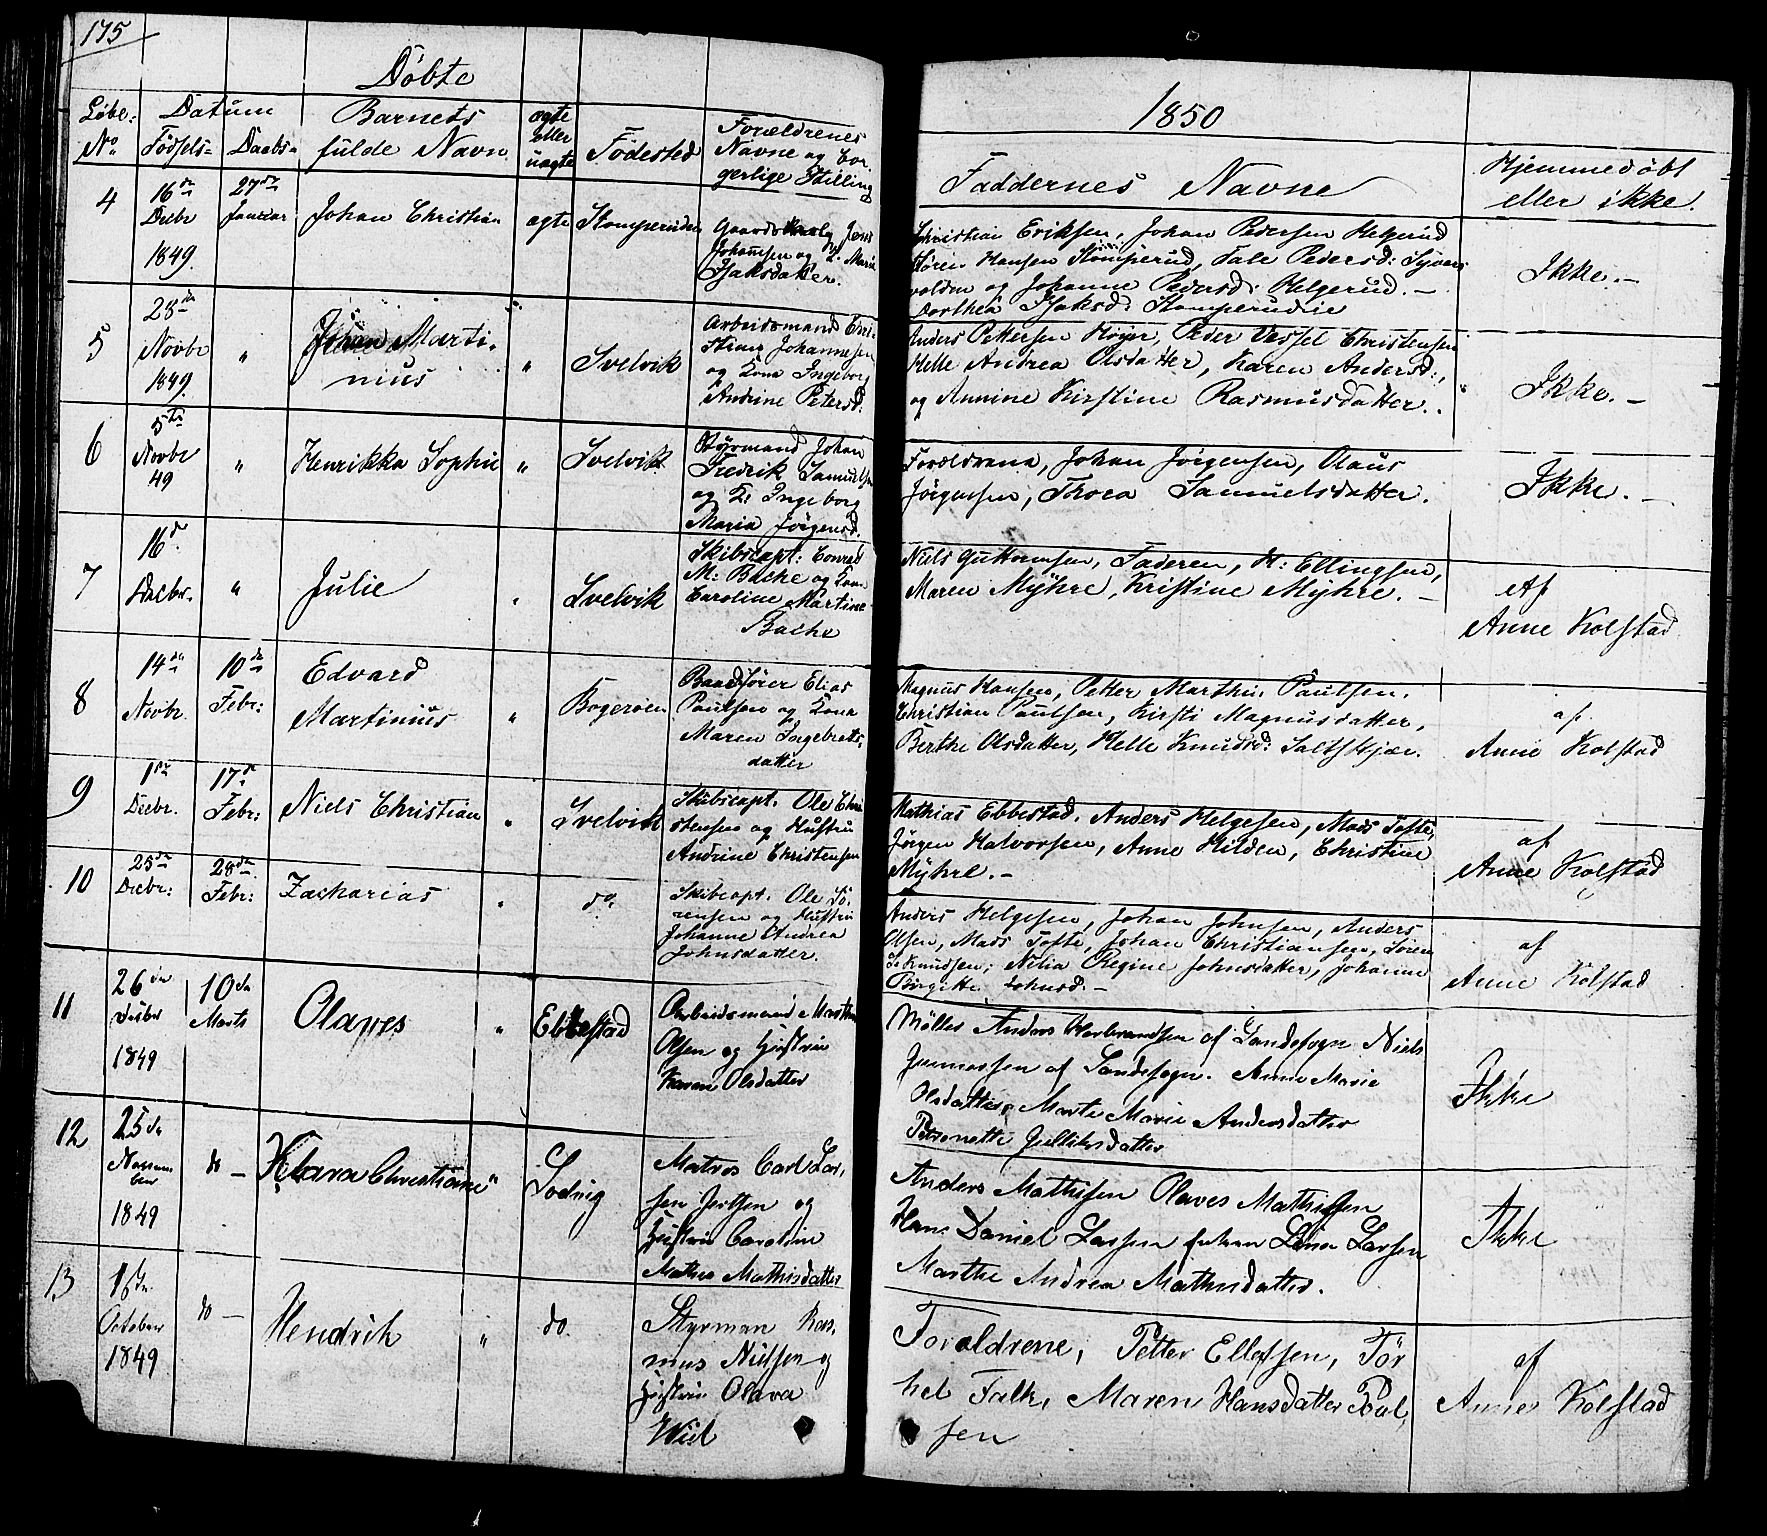 175
Döbte
1850
Löbe: No.
Datum
Födsels=
Daabs=
Barnets
fulde Navn
ægte
eller
uægte
Födested
Forældrenes
Navne og Bor
gerlige Stilling
Faddernes Navne
Hjemmedöbt
eller ikke.
4
16de
Decbr
1849.
27de
Januar
Johan Christian
ægte
Stomperudeie
Johannsen og K: Marie
Isaksdatter.
Christian Eriksen, Johan Pedersen Helgerud
Sören Hansen Stomperud, Tale Pedersd:
volden og Johanne Pedersd: Helgerud. —
Dorthea Isaksd: Stomperudeie
Ikke. —
5
28de
Novbr
1849.
"
Johan Marti-
nius
"
Svelvik
Arbeidsmand Chri-
stian Johannesen
og Kona Ingeborg
Andrine Petersd.
Anders Pettersen Höyer, Peder Vessel Christensen
Helle Andrea Olsdatter, Karen Andersd:,
og Annine Kirstine Rasmusdatter.
Ikke. —
6
5te
Novbr
49
"
Henrikka Sophie
"
Svelvik
Styrmand Johan
Fredrik Samuelsen
og K: Ingeborg
Maria Jörgensd.
Forældrene, Johan Jörgensen, Olaus
Jörgensen, Thora Samuelsdatter.
Ikke. —
7
16d.
Decbr.
"
Julie
"
Svelvik
Skibscapt: Conrad
M: Bache og Kona
Caroline Martine
Bache
Niels Guttormsen, Faderen, H: Ellingsen,
Maren Myhre, Kristine Myhre. —
Af
Anne Kolstad
8
14de
Novbr.
10de
Febr:
Edvard
Martinius
"
Bogeröen
Baadförer Elias
Paulsen og Kona
Maren Ingebretts-
datter
Magnus Hansen, Petter Marthin Paulsen.
Christian Paulsen, Kirsti Magnusdatter,
Berthe Olsdatter, Helle Knudsd:
af
Anne Kolstad
9
1ste
Decbr.
17de
Febr:
Niels Christian
"
Svelvik
Skibscapt. Ole Chri-
stensen og Hustru
Andrine Christensen
Mathias Ebbestad, Anders Helgesen, Mads Tofte,
Jörgen Halvorsen, Anne Hilden, Christine
Myhre. —
af
Anne Kolstad
10
25de
Decbr:
28de
Febr:
Zacharias
"
do.
Skibscapt. Ole Sö-
rensen og Hustru
Johanne Andrea
Johnsdatter.
Anders Helgesen, Johan Johnsen, Anders
Olsen, Mads Tofte, Johan Christiansen, Sören
Knudsen; Nilia Regine Johnsdatter, Johanne
Birgitte Johnsd. —
af
Anne Kolstad
11
26de
Decbr
1849
10de
Marts
Olaves
"
Ebbestad
Arbeidsmand Marthin
Olsen og Hustru
Karen Olsdatter
Möller Anders Herbrandsen af Sandesogn Niels
Gunnersen af Sandesogn. Anne Marie
Olsdatter, Marte Marie Andersdatter
Petronette Gulliksdatter
Ikke
12
25de
Novem
ber
1849
do —
Klara Christiane
"
Sodvig
Matros Carl Lar-
sen Jertsen og
Hustrue Caroline
Mathea Mathisdatter
Anders Mathisen Olaves Mathissen
Hans Daniel Larsen Johan Larsen
Marthe Andrea Mathisdatter.
Ikke
13
16de
October
1849
do —
Hendrik
"
do.
Styrman Ras-
mus Nielsen og
Hustrue Olava
Wiel
Foraldrene, Petter Ellefsen, Tör
kel Falk, Maren Hansdatter Poul,
sen
af
Anne Kolstad